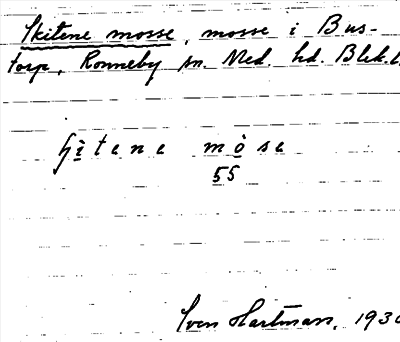 Skitene mosse, mosse i Bus-
torp, Ronneby sn. Med. hd. Blek.l.
mòse
55
Sven Hartman, 1930